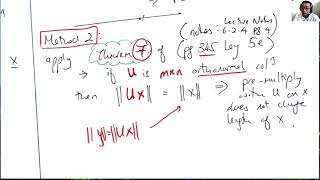 Method 2:
(notes: Lecture Notes 6.2.4 pg 4
apply Theorem 7 of (pg 345 Lay 5e)
x
→ if U is m×n orthonormal col's
then ||Ux|| = ||x|| ⇒ pre-multiply
with U on x
does not change
length of x.
||y||=||Ux||